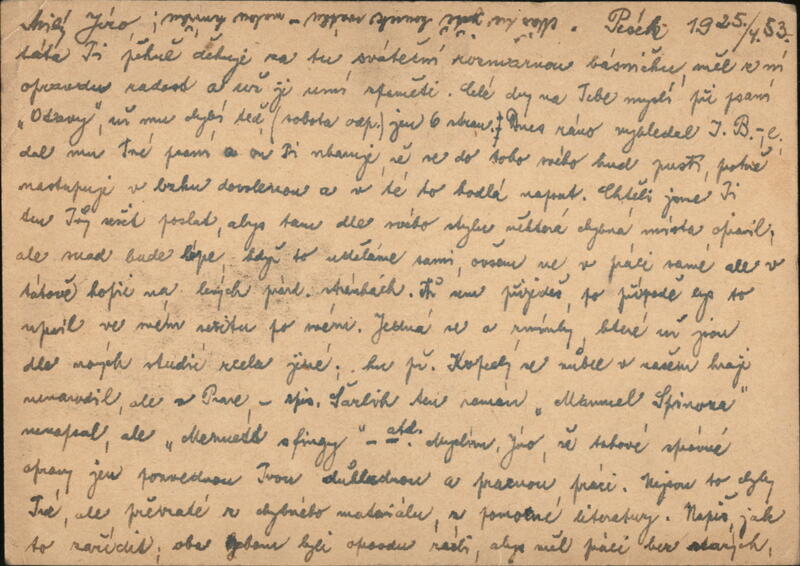 Milý Jiro, Písek 1925/4.53.
táta Ti pěkně děkuje za tu sváteční rozmarnou básničku, měl z ní
opravdu radost a už je umí zpaměti. Celé dny na Tebe myslí při psaní
„Otavy“, už mu chybí teď (sobota odp.) jen 6 stran. Dnes ráno vyhledal J. B.
dal mu Tvé psaní a on Ti vzkazuje, že se do toho svého hned pustí, potně
nastupuje v brzku dovolenou a v té to hodlá napsat. Chtěli jsme Ti
ten Tvůj sešit poslat, abys tam dle svého stylu některá chybná místa opravil,
ale snad bude lépe když to uděláme sami, ovšem ne v práci samé ale v
tátově kopii na levých stránkách. Až sem přijedeš, po případě bys to
upsil ve svém sešitu po svém. Jedná se o zmínky, které už jsou
dle nových studií zcela jiné; ku př. Kopecký se vůbec v našem kraji
nenarodil, ale v Praze, – spis. Šarlih ten román „Manuel Spinoza“
nenapsal, ale „Mernetk sfingy“ – atd. Myslím, Jiro, že takové správné
opravy jen pozvednou Tvou důkladnou a pracnou práci. Nejsou to chyby
Tvé, ale převzaté z chybného materiálu, z pomocné literatury. Napiš, jak
to zařídit; oba bychom byli opravdu rádi, abys měl práci bez starých,